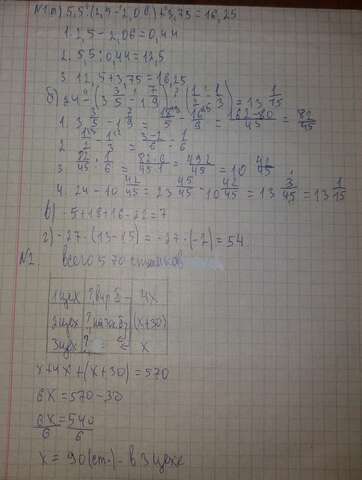 N1 а) 5,5 : (2,5 - 2,06) + 3,75 = 16,25
1. 2,5 - 2,06 = 0,44
2. 5,5 : 0,44 = 12,5
3. 12,5 + 3,75 = 16,25
б) 24 - (3 3/5 - 1 7/9) : (1/2 - 1/3) = 13 1/15
1. 3 3/5 - 1 7/9 = 18/5 - 16/9 = 162-80/45 = 82/45
2. 1/2 - 1/3 = 3-2/6 = 1/6
3. 82/45 : 1/6 = 82·6/45·1 = 492/45 = 10 42/45
4. 24 - 10 42/45 = 23 45/45 - 10 42/45 = 13 3/45 = 13 1/15
в) -5+18+16-22=7
г) -27 · (13-15) = -27 · (-2) = 54
N2 всего 570 станков
1 цех ? 4x
2 цех ? (x+30)
3 цех ? x
x+4x+(x+30)=570
6x=570-30
6x/6 = 540/6
x = 90 (ст.) - в 3 цехе